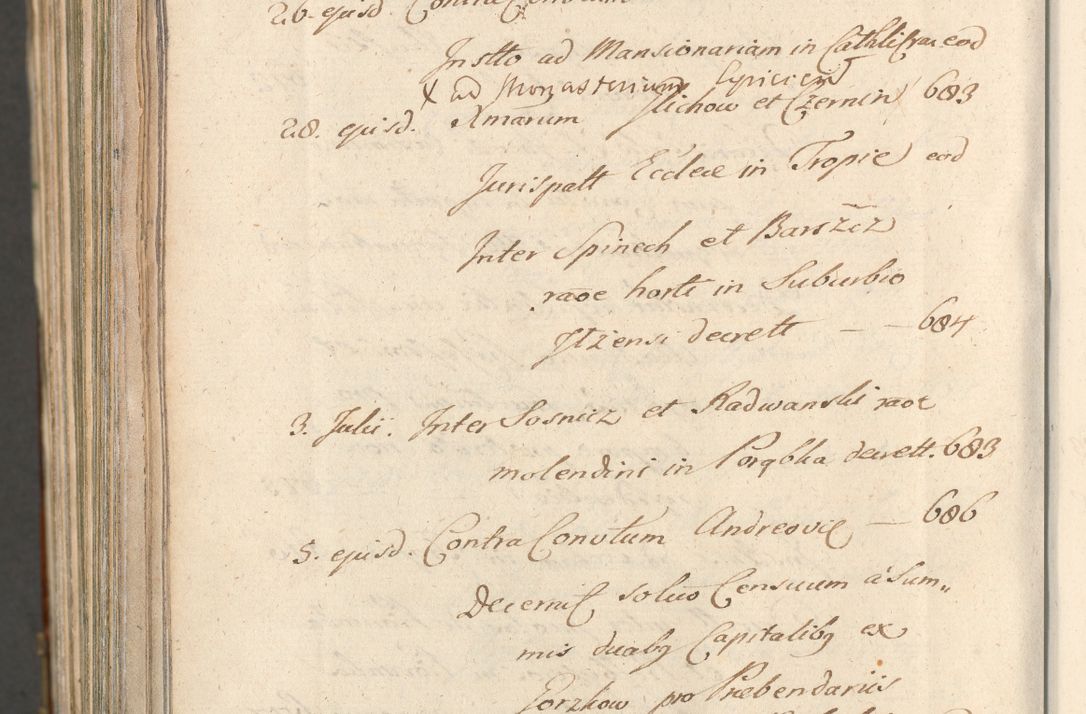 26. ejusd. Contra Conventum
Instto ad Mansionariam in Cathli Crac eod
X ad Monasterium Lypicien
28. ejusd. Almarum Ilichow et Czernin 683
Jurispatt Ecclae in Tropie eod
Inter Spinech et Barszcz
raoe horti in Suburbio
Ilzensi decrett — — 684
3. Julii. Inter Sosnicz et Radwanski raoe
molendini in Porąbka decrett. 683
5. ejusd. Contra Convtum Andreovie — 686
Decernit soluo Censuum a Sum„
mis duabq Capitalibq ex
Gorzkow pro Praebendariis